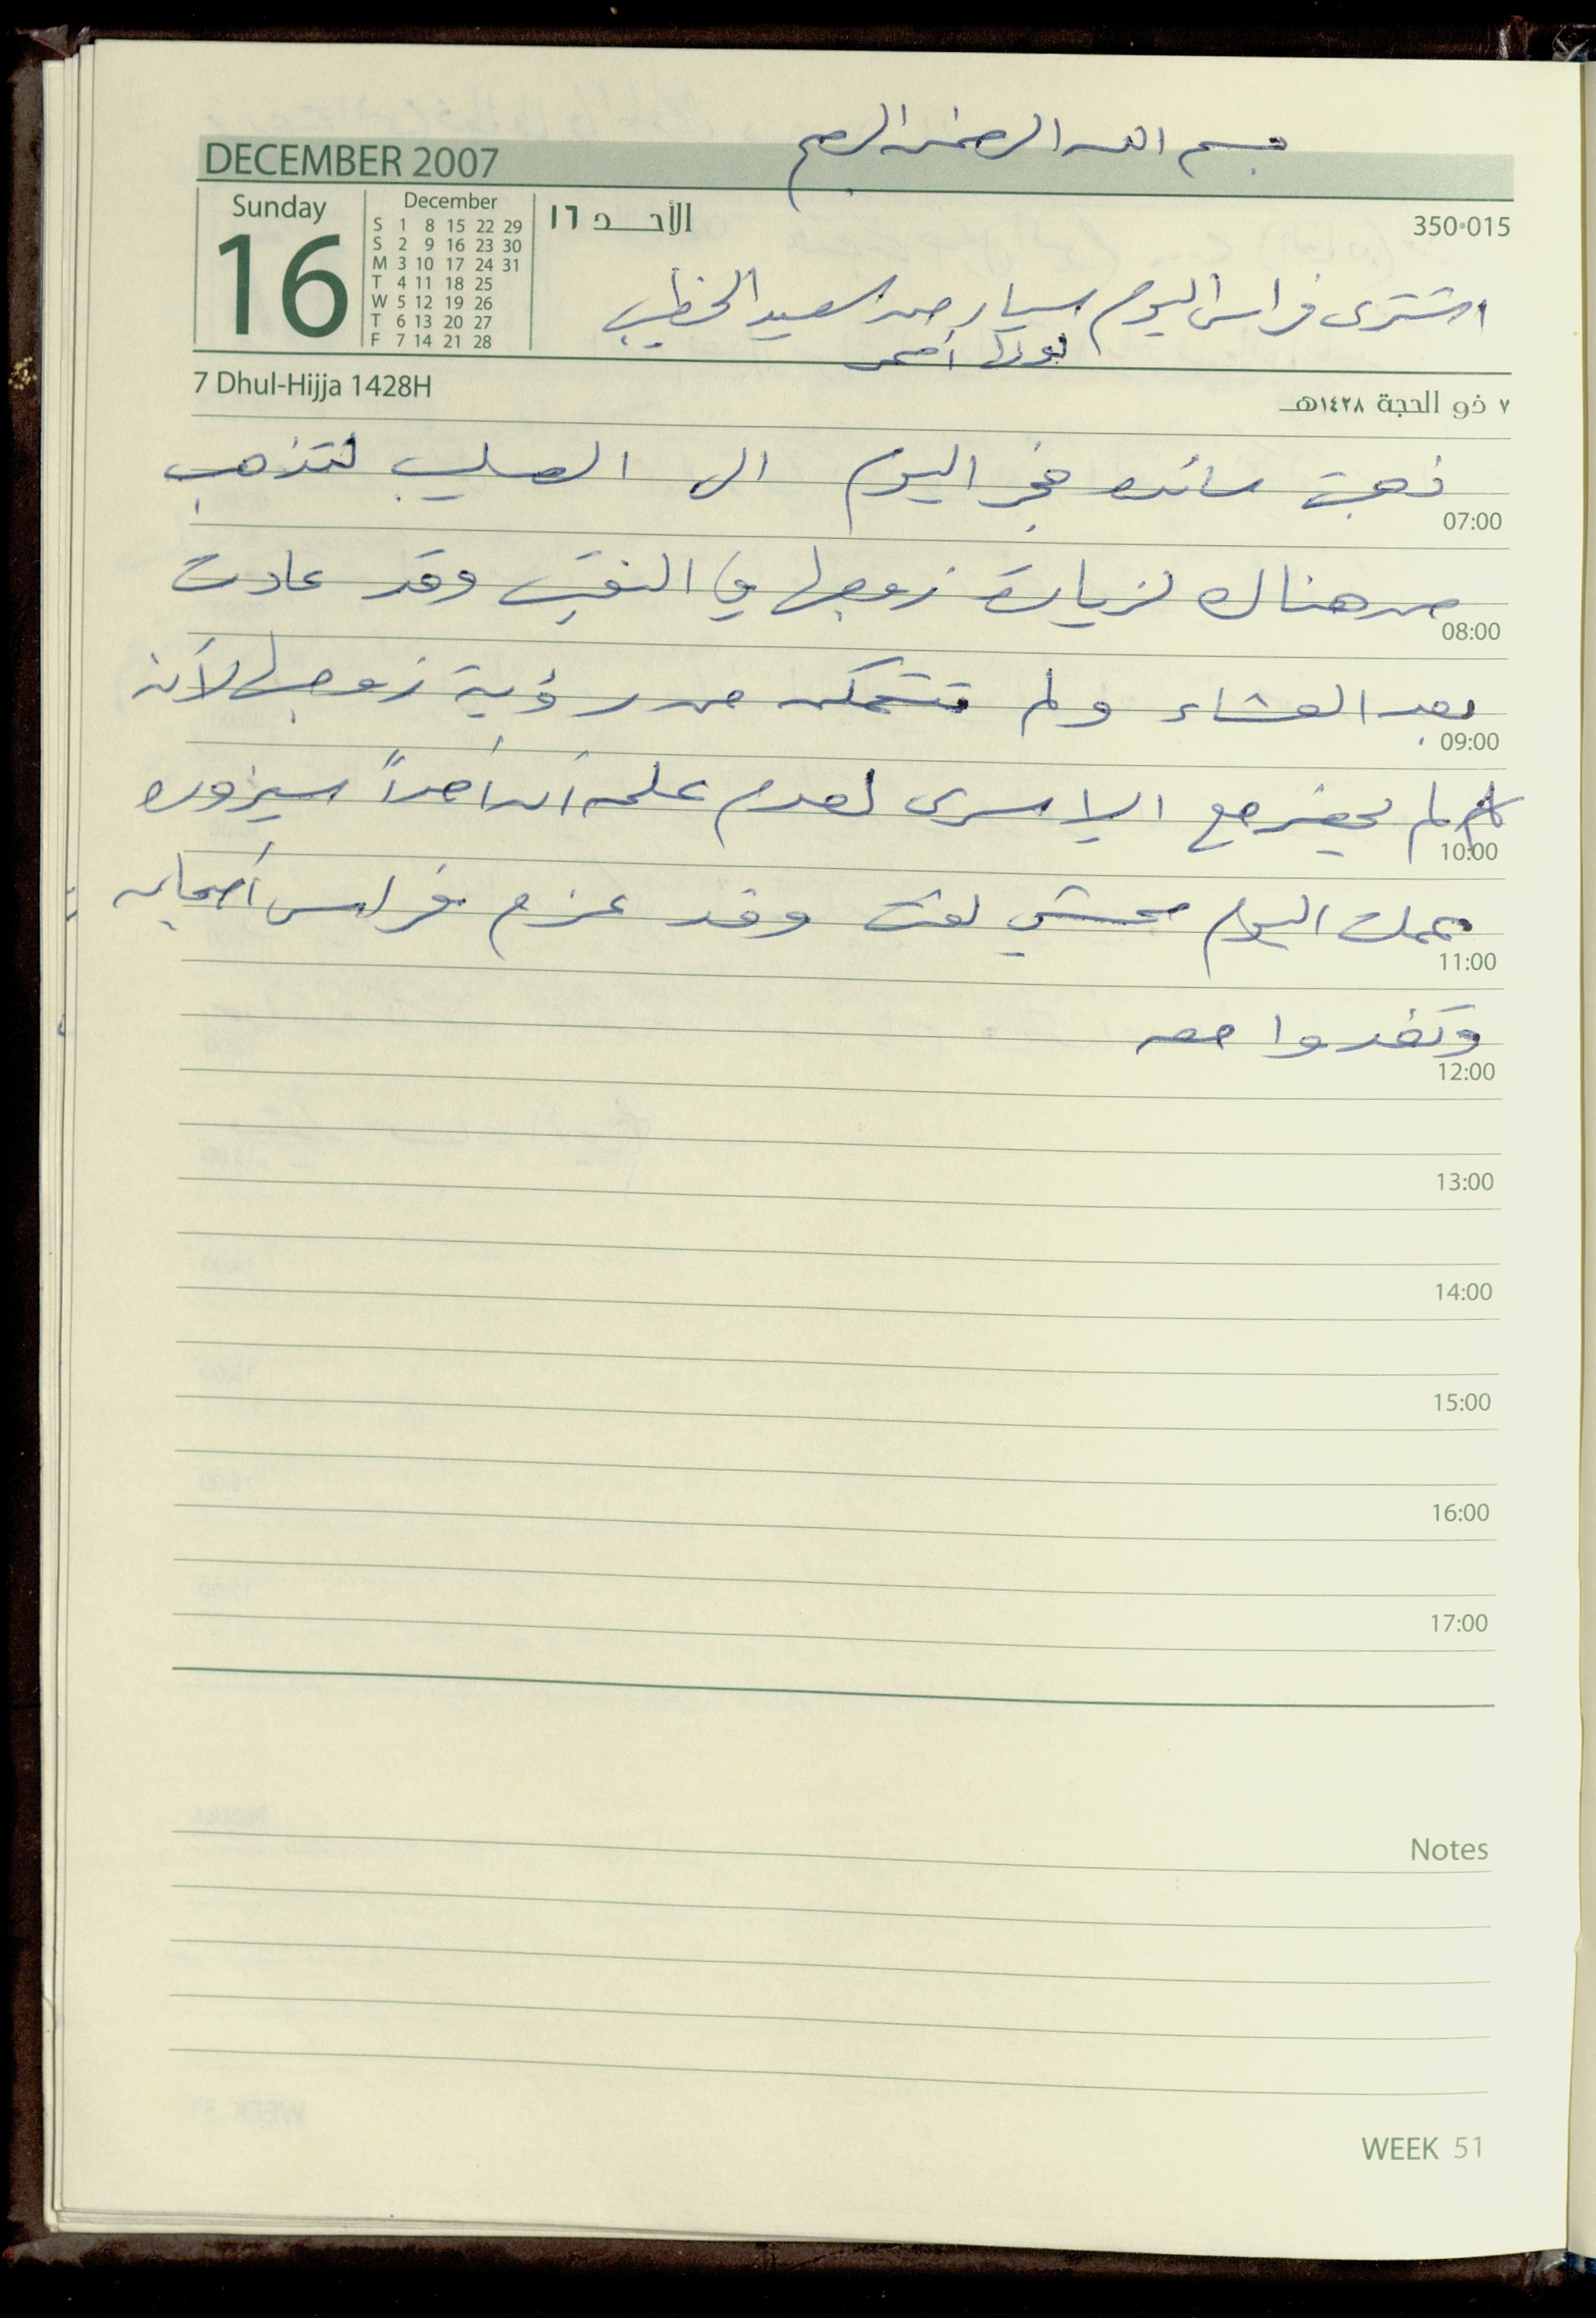 بسم الله الرحمن الرحيم
DECEMBER 2007
Sunday
16
December
S 1 8 15 22 29
S 2 9 16 23 30
M 3 10 17 24 31
T 4 11 18 25
W 5 12 19 26
T 6 13 20 27
F 7 14 21 28
الأحد ١٦
350-015
اشترى فراس اليوم سيار من السعيد الخطيب
لونها أحمر
7 Dhul-Hijja 1428H
٧ ذو الحجة ١٤٢٨هـ
ذهبت سائده فجر اليوم الى الصليب لتذهب
07:00
من هناك لزيارة زوجها في النقب وقد عادت
08:00
بعد العشاء ولم تتمكن من رؤية زوجها لأنه
09:00
لم يحضر مع الاسرى لعدم علمه ان احداً سيزوره
10:00
عملت اليوم محشي لفت وقد عزم فراس أصحابه
11:00
وتغدوا معه
12:00
13:00
14:00
15:00
16:00
17:00
Notes
WEEK 51